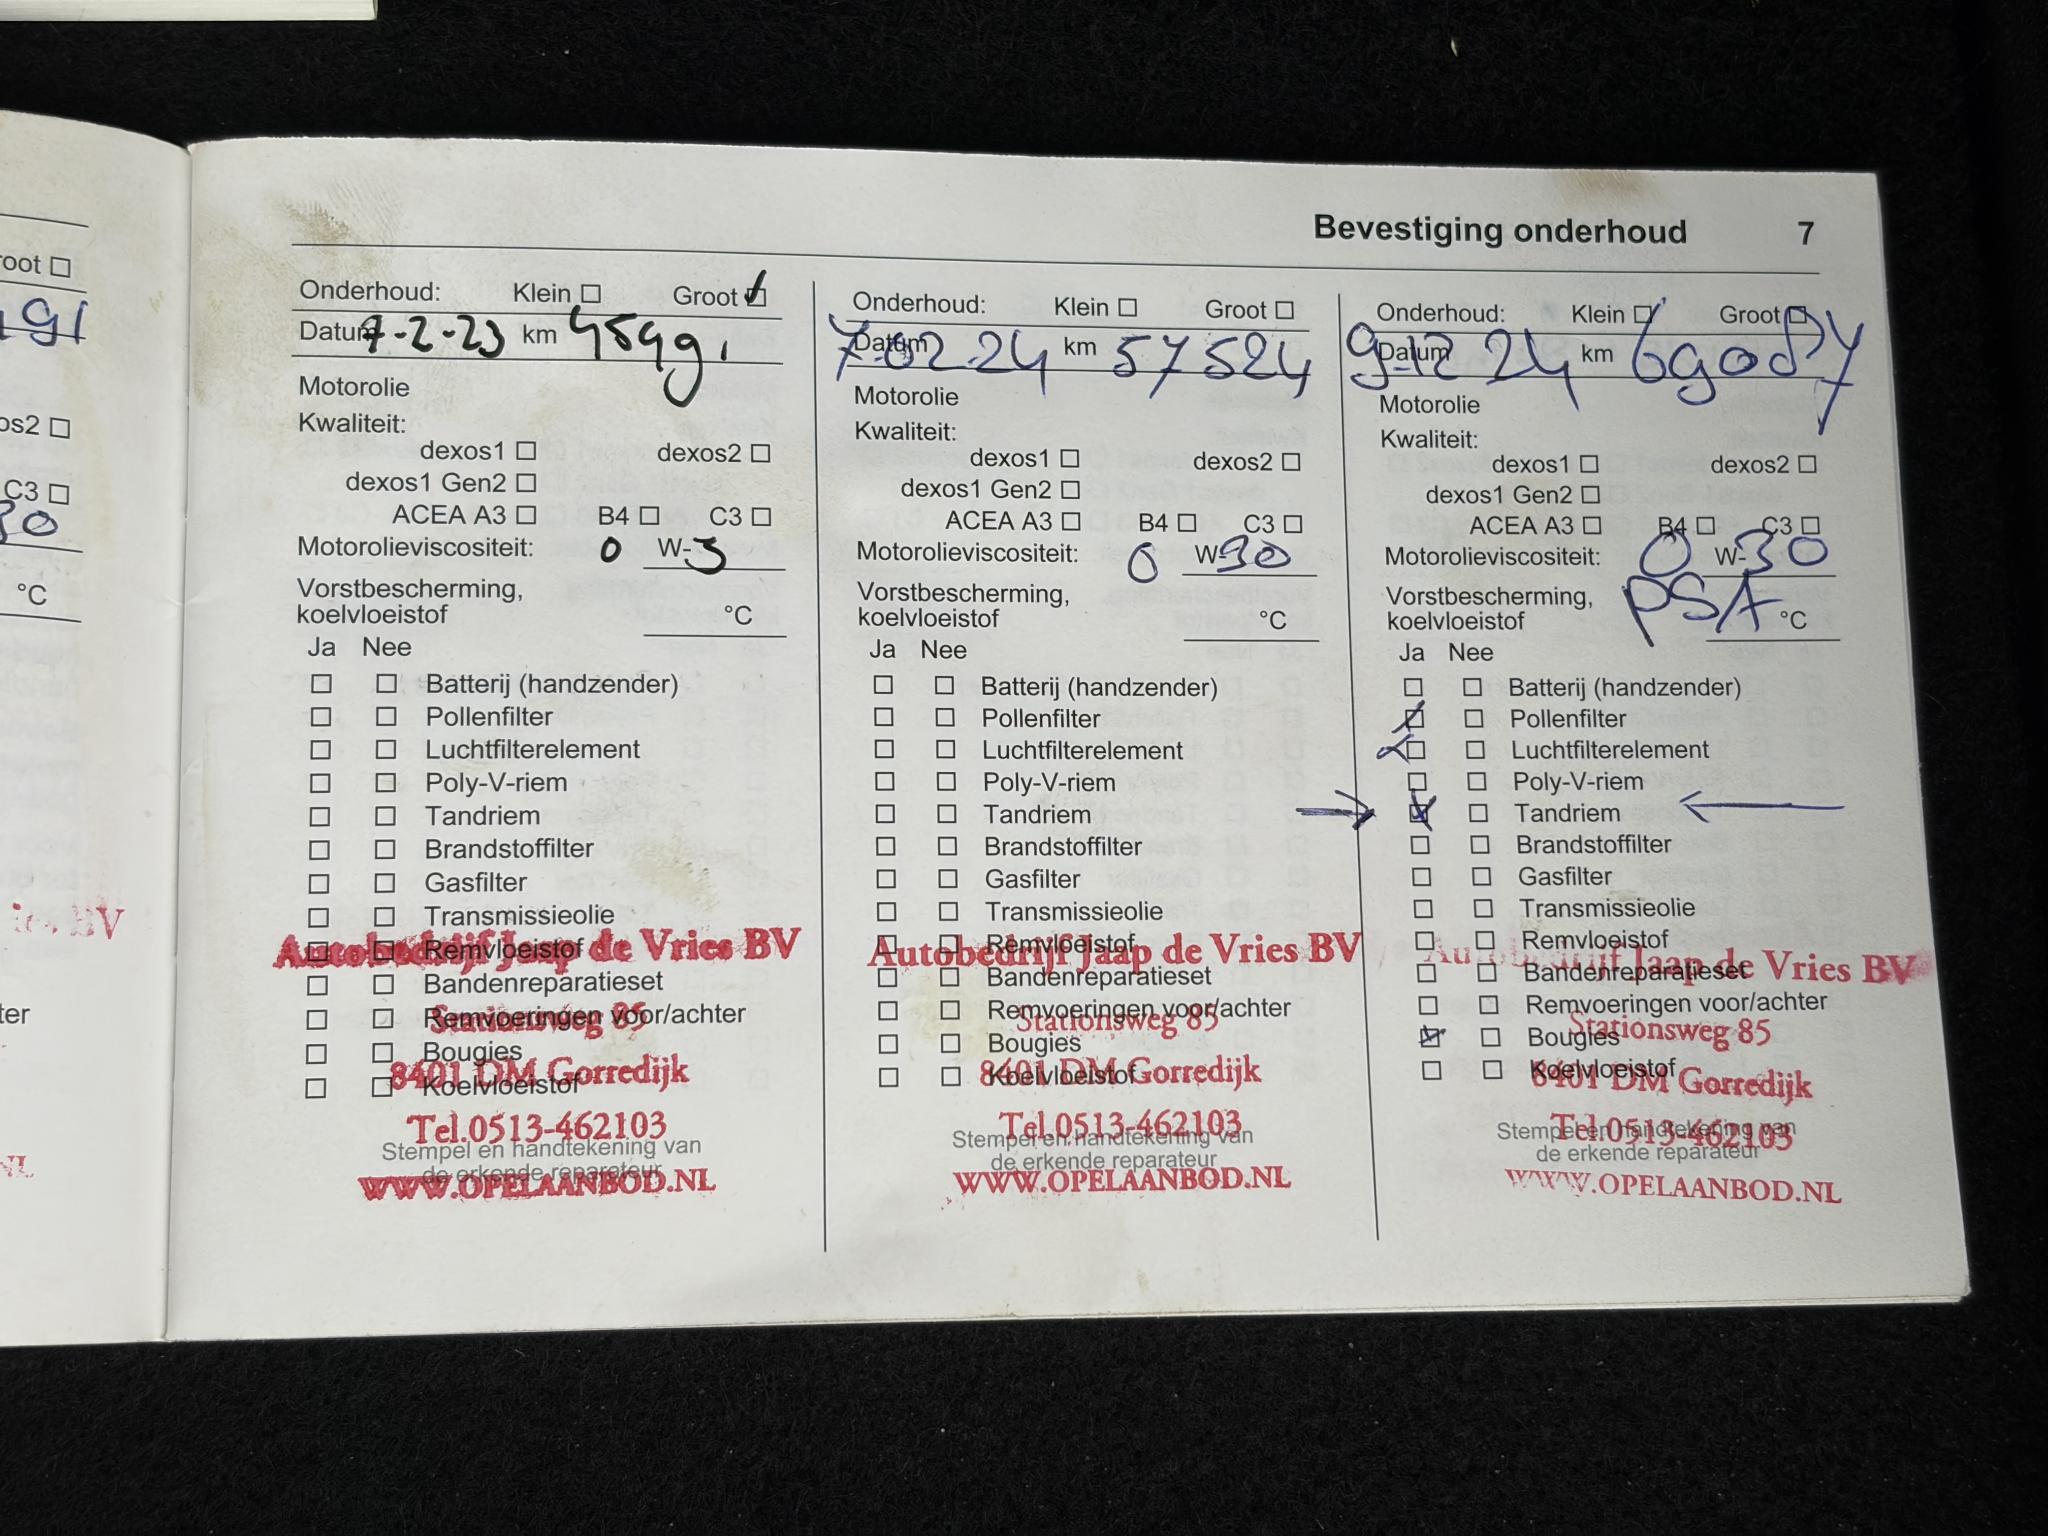 oot
91
os2
C3
30
°C
ter
ies BV
NL
Bevestiging onderhoud 7
Onderhoud: Klein Groot
Datum 7-2-23 km 45491
Motorolie
Kwaliteit:
dexos1 dexos2
dexos1 Gen2
ACEA A3 B4 C3
Motorolieviscositeit: 0 W-3
Vorstbescherming,
koelvloeistof °C
Ja Nee
Batterij (handzender)
Pollenfilter
Luchtfilterelement
Poly-V-riem
Tandriem
Brandstoffilter
Gasfilter
Transmissieolie
Remvloeistof
Autobedrijf Jaap de Vries BV
Bandenreparatieset
Remvoeringen voor/achter
Stationsweg 85
Bougies
8401 DM Gorredijk
Koelvloeistof
Tel.0513-462103
Stempel en handtekening van
de erkende reparateur
WWW.OPELAANBOD.NL
Onderhoud: Klein Groot
Datum 7-02-24 km 57524
Motorolie
Kwaliteit:
dexos1 dexos2
dexos1 Gen2
ACEA A3 B4 C3
Motorolieviscositeit: 0 W-30
Vorstbescherming,
koelvloeistof °C
Ja Nee
Batterij (handzender)
Pollenfilter
Luchtfilterelement
Poly-V-riem
Tandriem
Brandstoffilter
Gasfilter
Transmissieolie
Remvloeistof
Autobedrijf Jaap de Vries BV
Bandenreparatieset
Remvoeringen voor/achter
Stationsweg 85
Bougies
8401 DM Gorredijk
Koelvloeistof
Tel.0513-462103
Stempel en handtekening van
de erkende reparateur
WWW.OPELAANBOD.NL
Onderhoud: Klein Groot
Datum 9-12 24 km
Motorolie
Kwaliteit:
dexos1 dexos2
dexos1 Gen2
ACEA A3 B4 C3
Motorolieviscositeit: 0 W-30
PSA
Vorstbescherming,
koelvloeistof °C
Ja Nee
Batterij (handzender)
Pollenfilter
Luchtfilterelement
Poly-V-riem
Tandriem
Brandstoffilter
Gasfilter
Transmissieolie
Remvloeistof
Autobedrijf Jaap de Vries BV
Bandenreparatieset
Remvoeringen voor/achter
Stationsweg 85
Bougies
Koelvloeistof
8401 DM Gorredijk
Tel.0513-462103
Stempel en handtekening van
de erkende reparateur
WWW.OPELAANBOD.NL